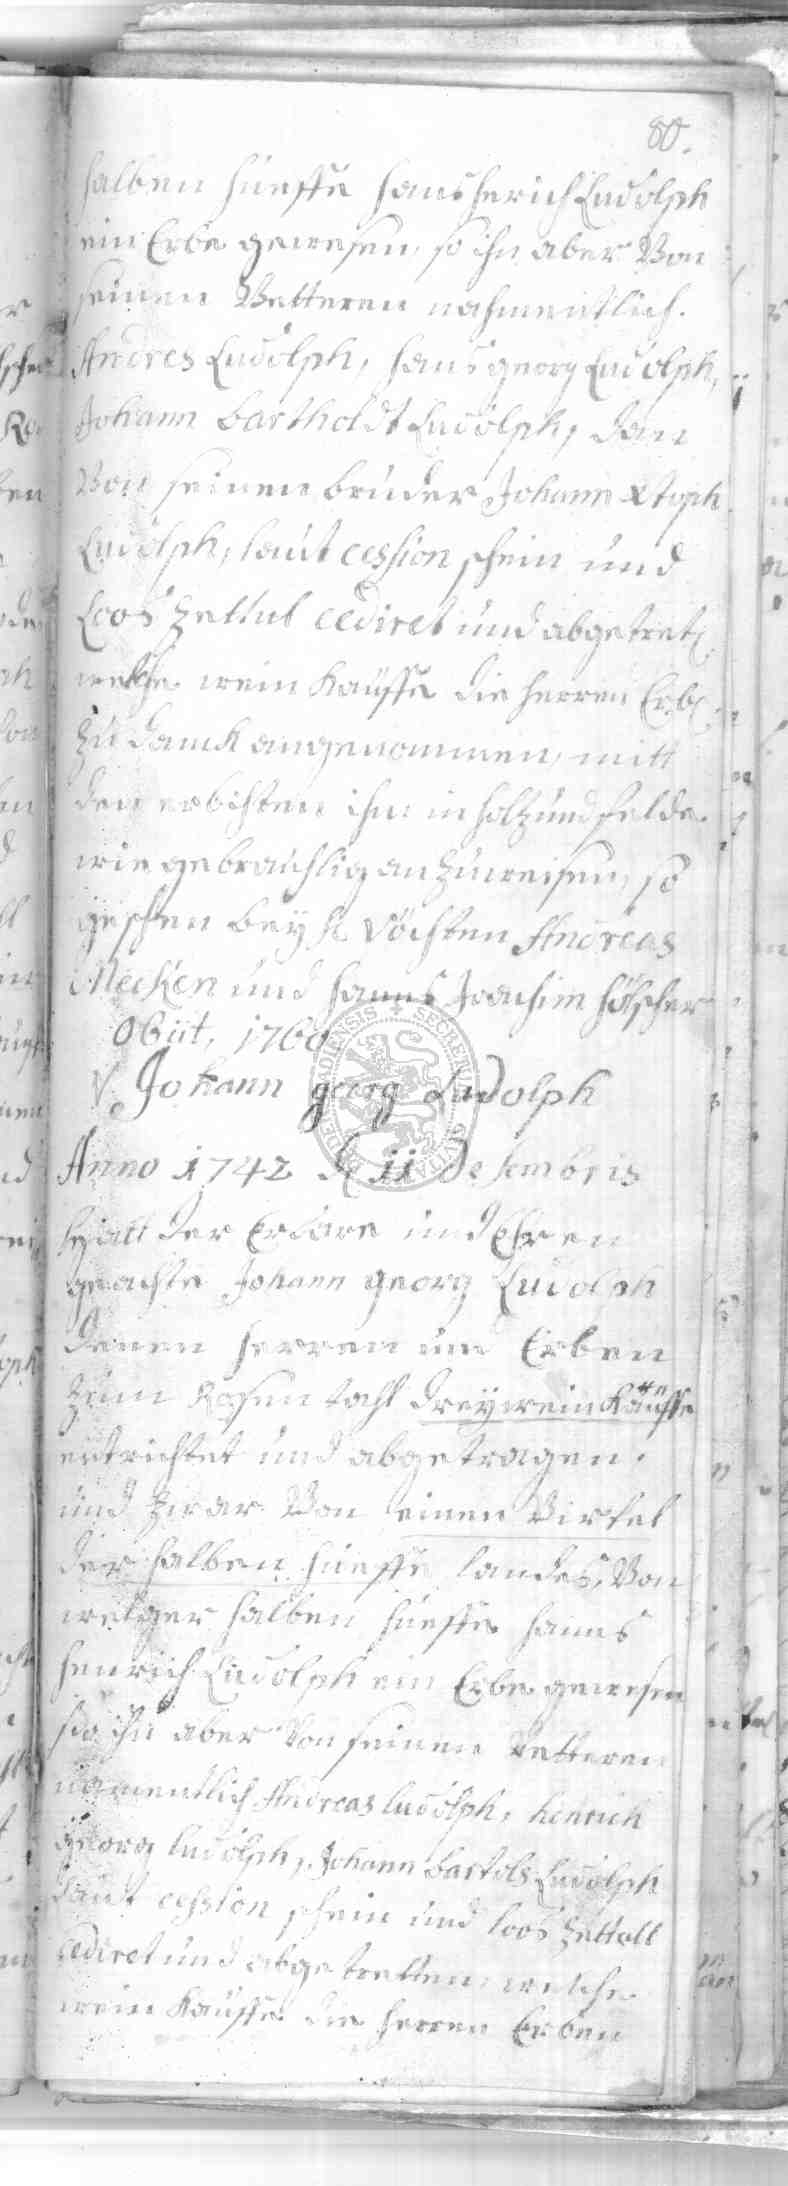 80.
halben hueffe hans henrich Ludolph
ein Erbe gewesen, so ihn aber Von
seinen Vetteren nahmentlich.
Andres Ludolph, hans georg Ludolph,
Johann bartholdt Ludolph, dan
Von seinen bruder Johann xtoph
Ludolph, laut cession schein und
Loos Zettul cediret und abgetret
welche wein Kauffe die herren Erb
zu danck angenommen, mitt
den erbithen ihm in holz und felde
wie gebrauchlig anzuweisen, so
geschen bey H. Vögten Andreas
Mecken und hanns Joachim hölscher
Obiit, 1760
Johann georg Ludolph
Anno 1742 d 11 Desembris
hatt der Erbare und Ehren
geachte Johann georg Ludolph
denen herren und Erben
zum Rosentahl drey wein Kauffe
entrichtet und abgetragen.
und zwar Von einen Virtel
der halben hueffe landes, Von
welger halben hueffe hanns
henrich Ludolph ein Erbe gewesen
so ihn aber Von seinen Vetteren
namentlich Andreas ludolph, henrich
georg ludolph, Johann bartols Ludolph
laut cession schein und loos Zettell
cediret und abgetretten, welche
wein Kauffe die herren Erben
SECRET CIVITA